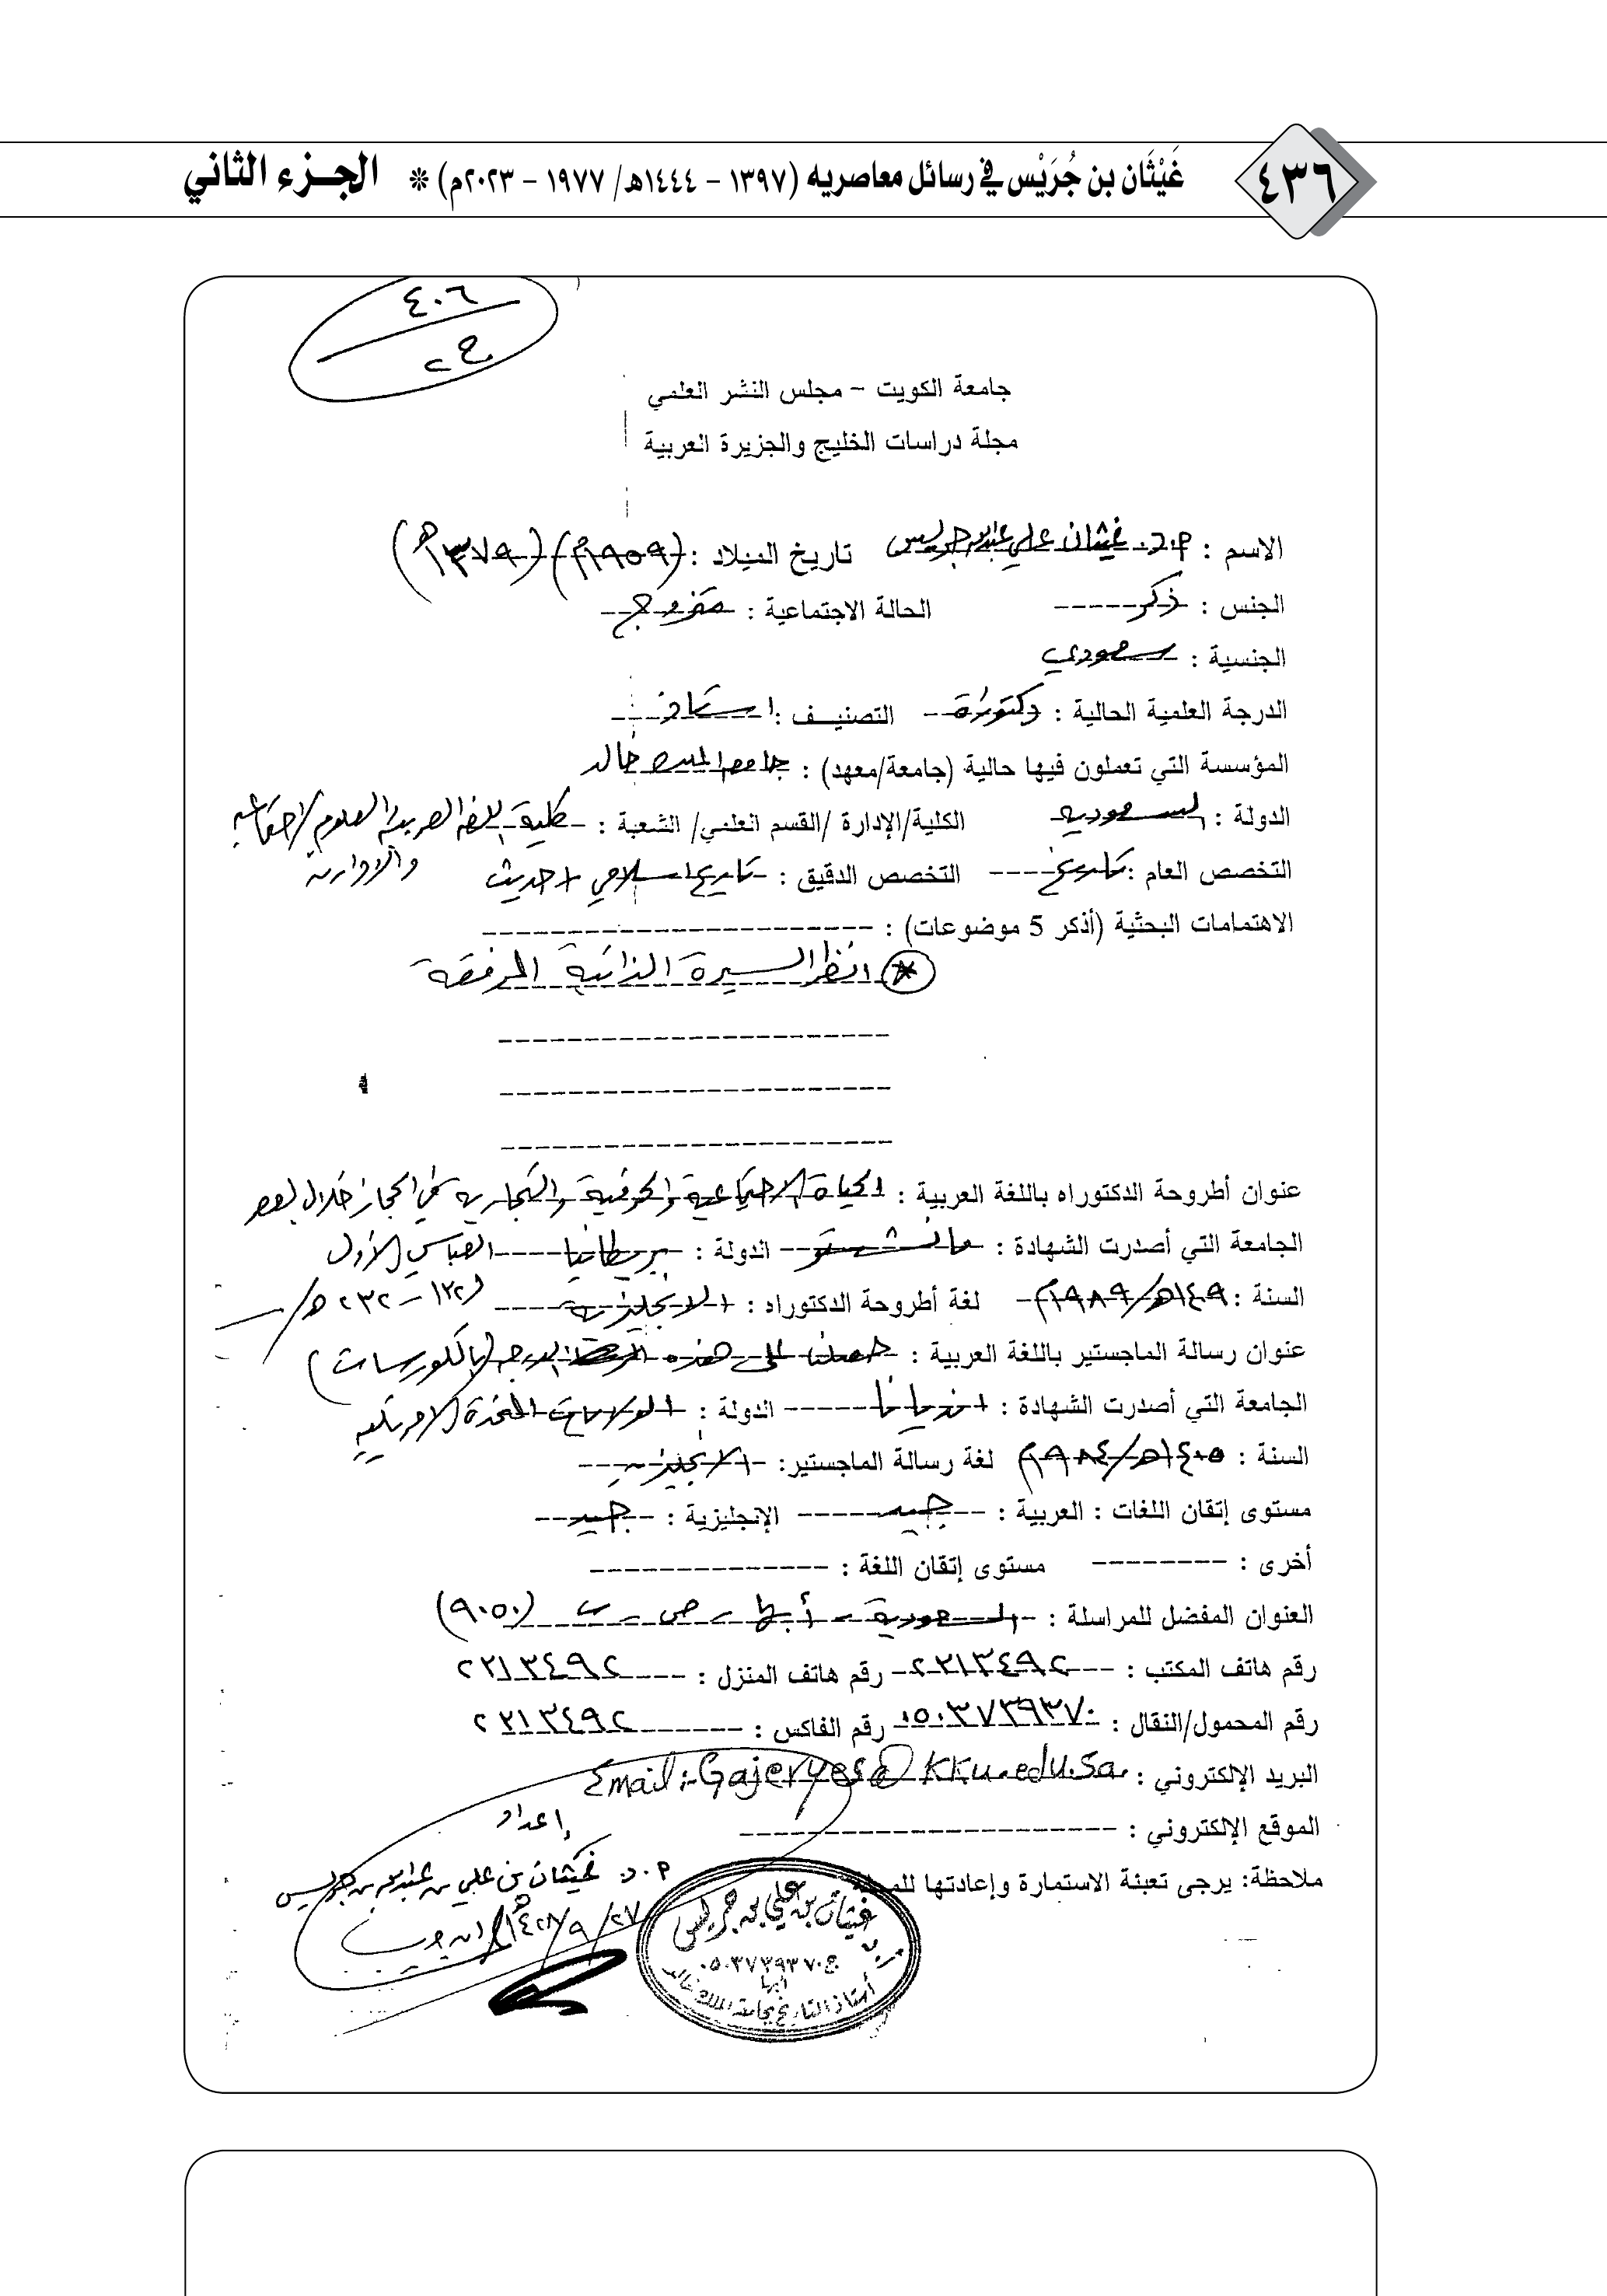 ٤٣٦
غَيْثَان بن جُرَيْس في رسائل معاصريه (١٣٩٧ - ١٤٤٤هـ/ ١٩٧٧ - ٢٠٢٣م) * الجزء الثاني
٤٠٦
ج٢
جامعة الكويت - مجلس النشر العلمي
مجلة دراسات الخليج والجزيرة العربية
الاسم : أ.د. غيثان علي عبدالله جريس تاريخ الميلاد : (١٩٥٩م) (١٣٧٩هـ)
الجنس : ذكر الحالة الاجتماعية : متزوج
الجنسية : سعودي
الدرجة العلمية الحالية : دكتوراة التصنيف : استاذ
المؤسسة التي تعملون فيها حالية (جامعة/معهد) : جامعة الملك خالد
الدولة : السعودية الكلية/الإدارة /القسم العلمي/ الشعبة : كلية اللغة العربية والعلوم الاجتماعية
والإدارية
التخصص العام : تاريخ التخصص الدقيق : تاريخ اسلامي + حديث
الاهتمامات البحثية (أذكر 5 موضوعات) :
* انظر السيرة الذاتية المرفقة
عنوان أطروحة الدكتوراه باللغة العربية : الحياة الاجتماعية والحرفية والتجارية في الحجاز خلال العصر
الجامعة التي أصدرت الشهادة : مانشستر الدولة : بريطانيا العباسي الأول
السنة : ١٤٠٩هـ/١٩٨٩م لغة أطروحة الدكتوراه : الانجليزية (١٣٢ - ٢٣٢هـ/
عنوان رسالة الماجستير باللغة العربية : حصلنا على هذه الدرجة (بالكورسات)
الجامعة التي أصدرت الشهادة : انديانا الدولة : الولايات المتحدة الامريكية
السنة : ١٤٠٥هـ/١٩٨٤م لغة رسالة الماجستير: الانجليزية
مستوى إتقان اللغات : العربية : جيد الإنجليزية : جيد
أخرى : مستوى إتقان اللغة :
العنوان المفضل للمراسلة : السعودية - أبها - ص . ب (٩٠٥٠)
رقم هاتف المكتب : ٢٢١٣٤٩٢ رقم هاتف المنزل : ٢٢١٣٤٩٢
رقم المحمول/النقال : ٠٥٠٣٧٣٩٣٧٠ رقم الفاكس : ٢٢١٣٤٩٢
البريد الإلكتروني : Email:- Gajeryes@kku.edu.sa.
الموقع الإلكتروني :
ملاحظة: يرجى تعبئة الاستمارة وإعادتها للمجلة
إعداد
أ.د. غيثان بن علي بن عبدالله بن جريس
٢٧/٩/١٤٢٨هـ
أ.د. غيثان بن علي بن جريس
ج٠٥٠٣٧٣٩٣٧٠
أبها
أستاذ التاريخ بجامعة الملك خالد